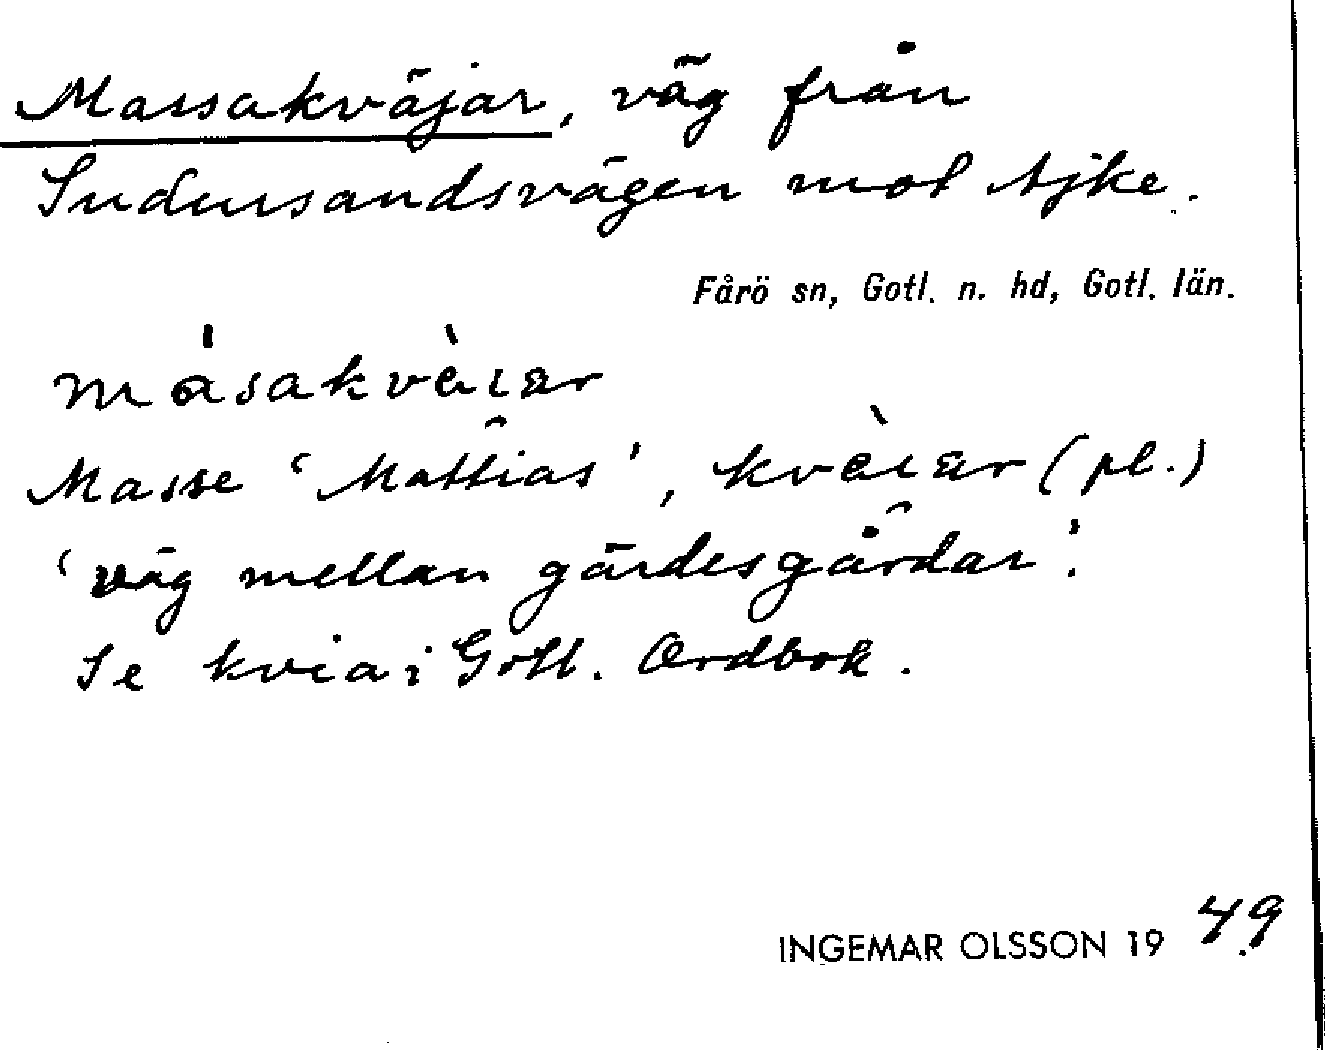 Massakväjar, väg från
Sudersandsvägen mot Ajke.
Fårö sn, Gotl. n. hd, Gotl. län.
màsakvὲιεr
Masse ‘Mattias’, kvὲιεr (pl.)
‘väg mellan gärdesgårdar’.
Se kvia i Gotl. Ordbok.
INGEMAR OLSSON 1949.